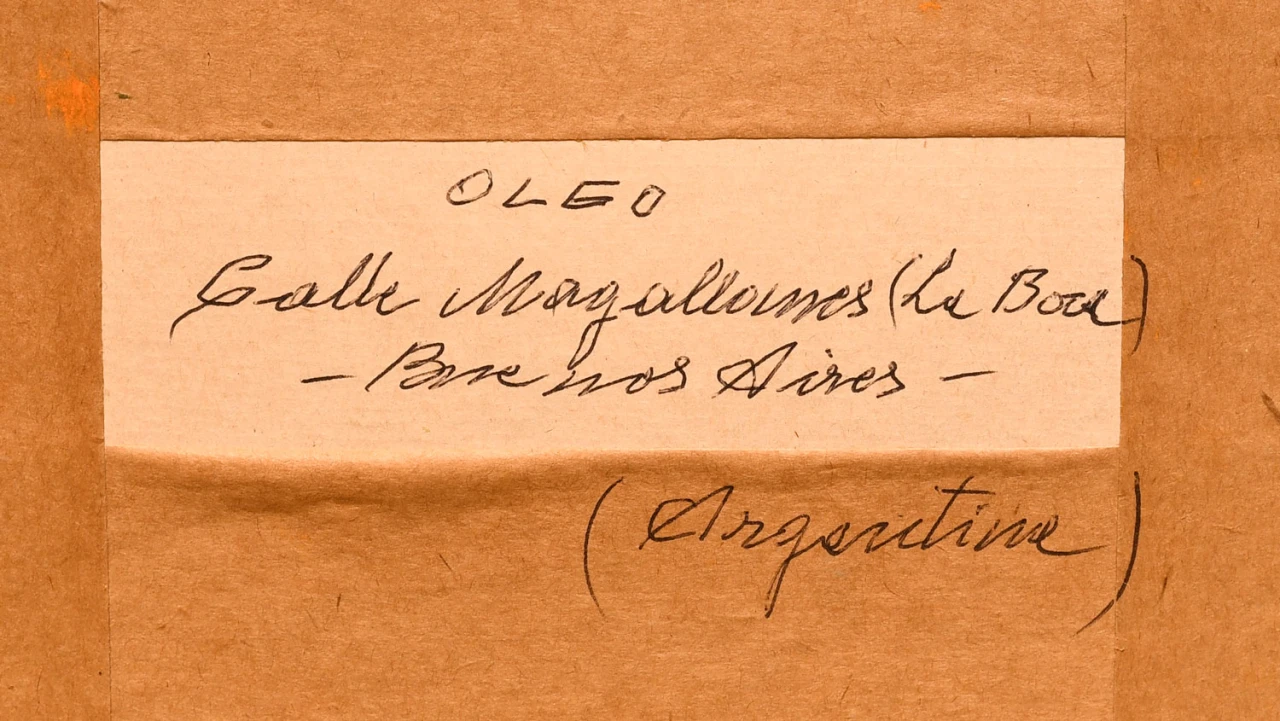 OLEO
Calle Magallanes (La Boca)
- Buenos Aires -
(Argentina)